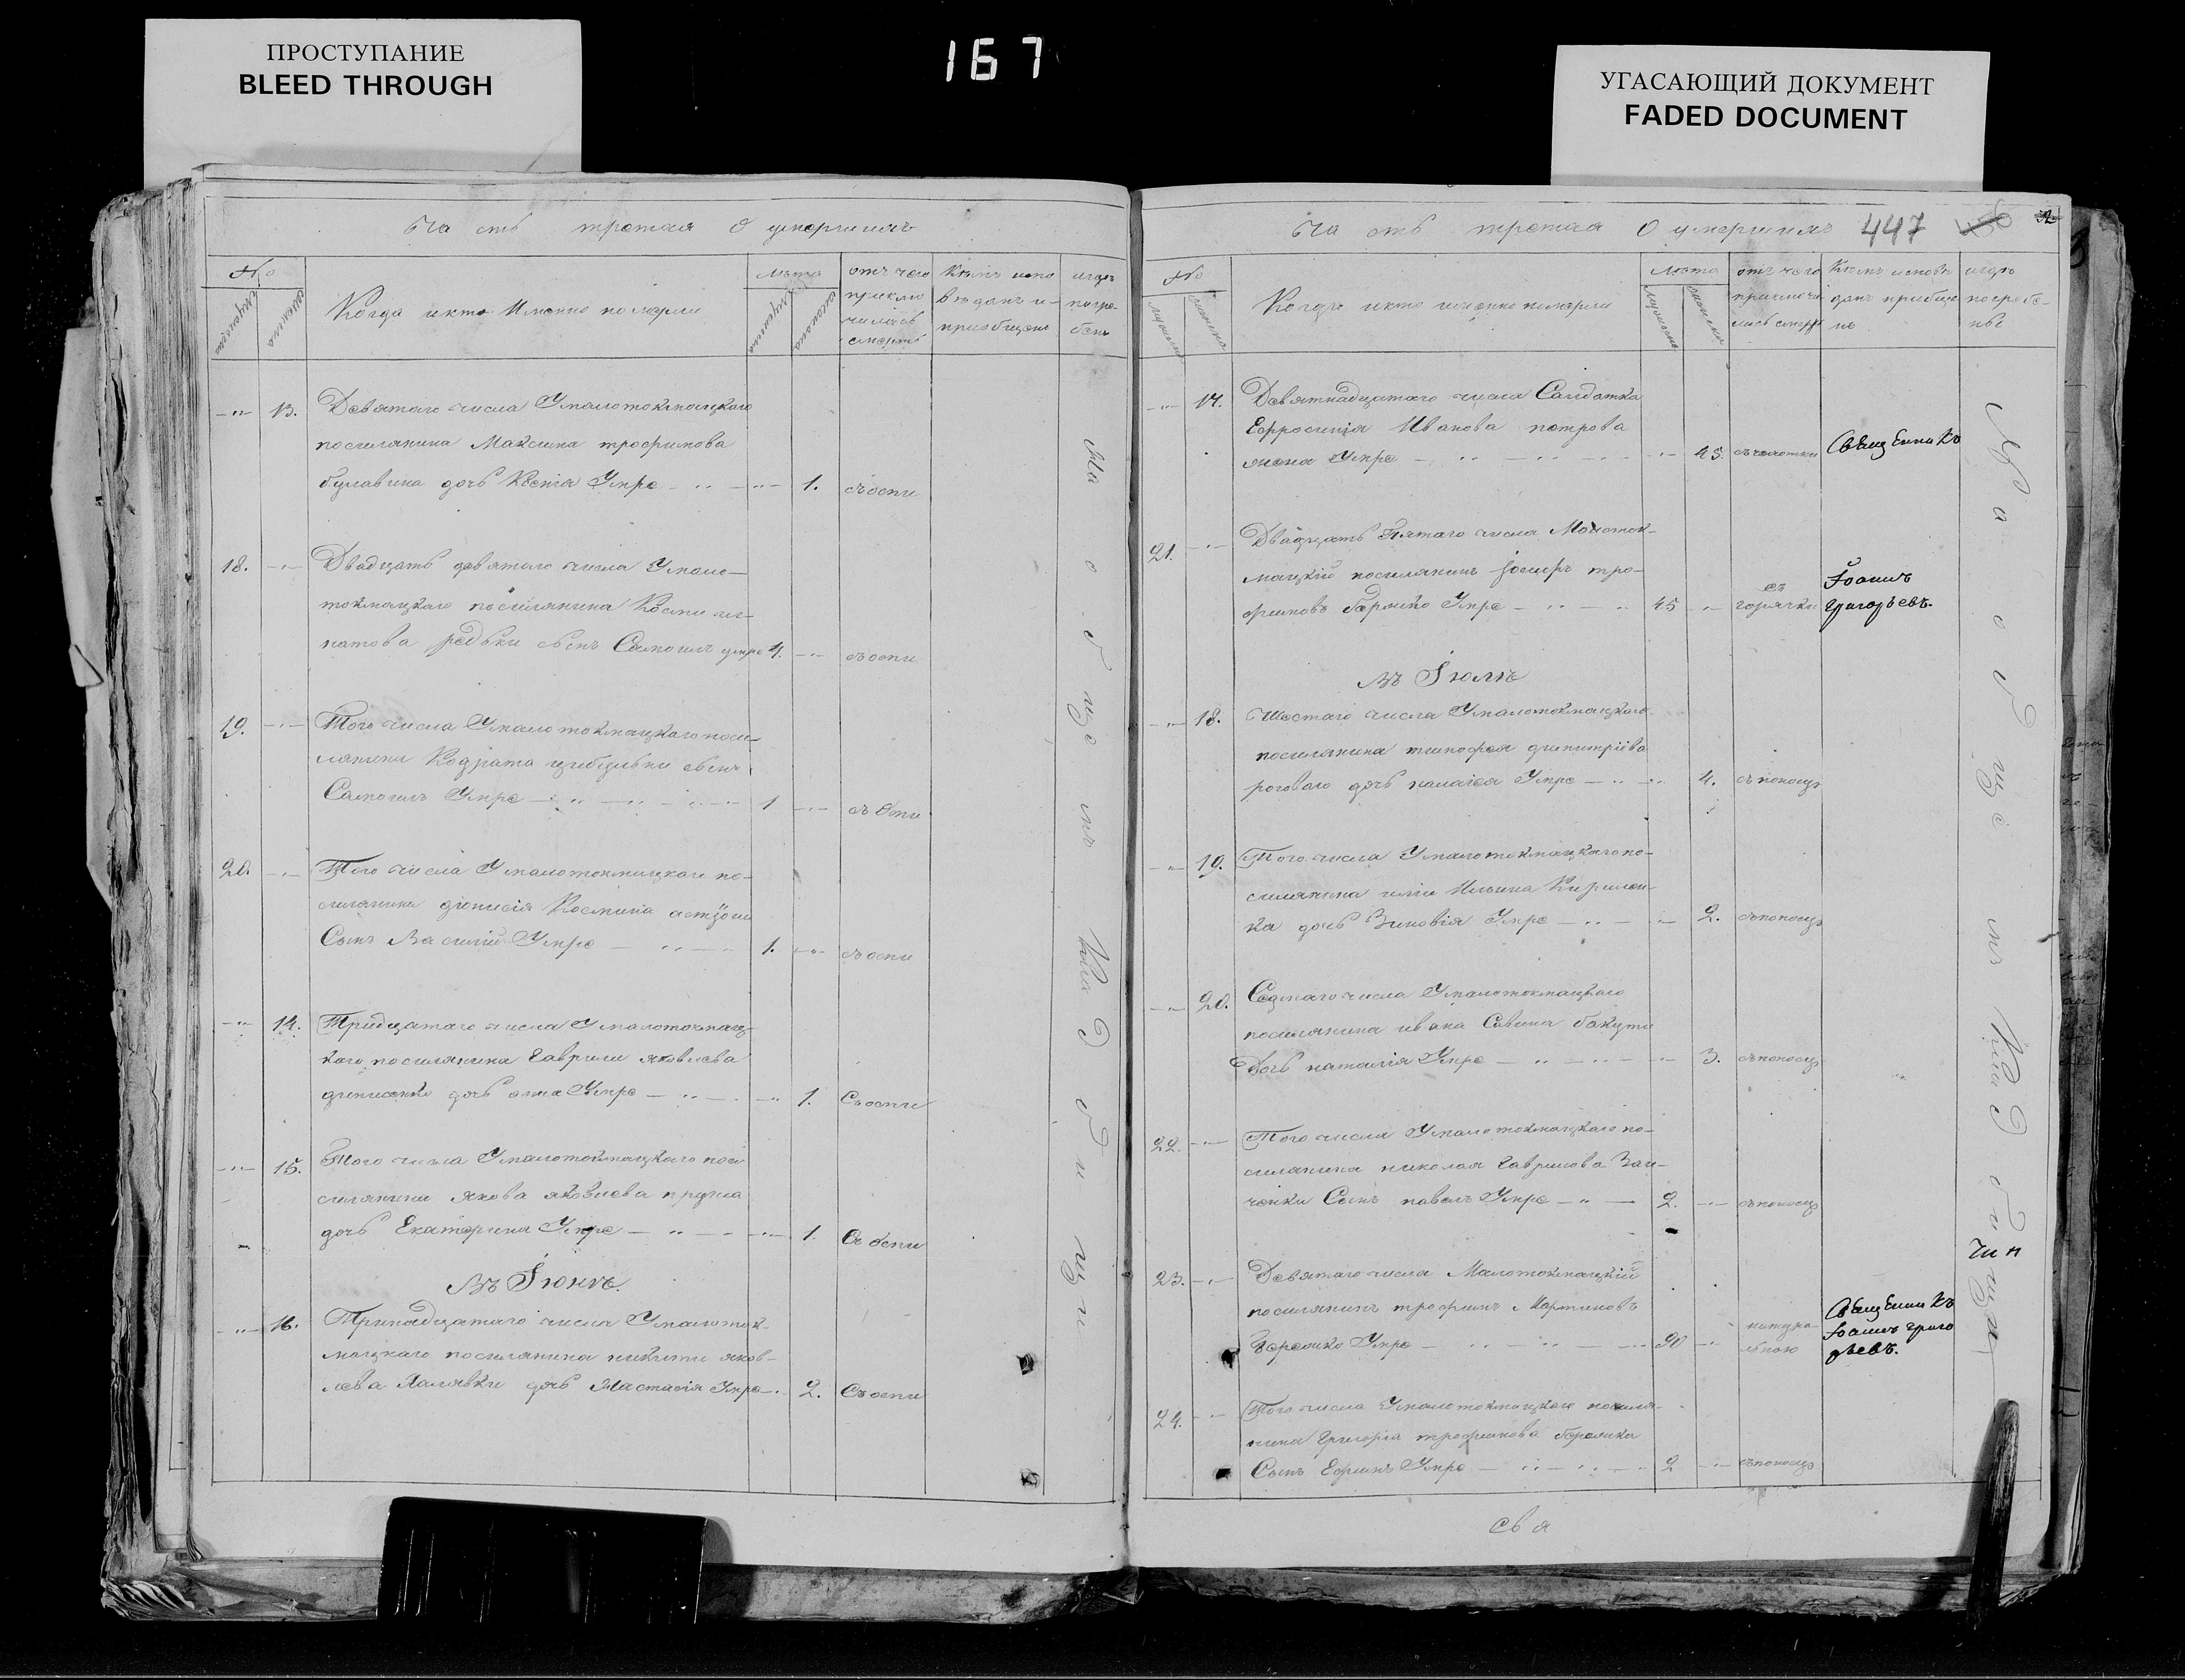 ПРОСТУПАНИЕ
BLEED THROUGH
167
УГАСАЮЩИЙ ДОКУМЕНТ
FADED DOCUMENT
Часть третая О умершихъ
№
мужеска
женска
Когда и кто Именно померли
лѣта
мужеска
женска
отъ чего
приклю
чилась
смерть
Кѣмъ испо
вѣданъ и
приобщенъ
и гдѣ
погре
бенъ
-„- 13. Девятаго числа Умалотокмацкаго
поселянина Максима трофимова
булавина дочь Ксенія Умре - „ - „ - 1. съ оспи
18. -„- Двадцать девятого числа Умало-
токмацкаго поселянина Космы
редьки сынъ Самоилъ умре 4. -„- съ оспи
19. -„- Того числа Умалотокмацкаго посе-
лянина Кодрата сынъ
Самоилъ Умре - „ - „ - 1 -„- съ Оспи
20. -„- Того числа Умалотокмацкаго по-
селянина діонисія Космина
Сынъ Василій Умре - „ - 1. -„- съ оспи
-„- 14. Тридцатаго числа Умалотокмац-
каго поселянина Гаврили яковлева
денисенко дочь анна Умре - „ - „ - 1. Съ оспи
-„- 15. Того числа Умалотокмацкаго посе
селянина якова яковлева
дочь Екатерина Умре - „ - „ - 1. Съ оспи
Въ Іюнѣ.
-„- 16. Тринадцатаго числа Умалоток-
мацкаго поселянина никити яков-
лева Халявки дочь Настасія Умре - 2. Съ оспи
На общемъ Кладбищи
Часть третая О умершихъ 447
№
мужеска
женска
Когда и кто именно померли
лѣта
мужеска
женска
отъ чего
приключи
лась смерть
Кѣмъ исповѣ
данъ приобще
нъ
и гдѣ
погребе-
ны
-„- 17. Девятнадцатаго числа Салдатка
Ефросинія Иванова петрова
жена Умре - „ - „ - 45. съ чахотки Священникъ
21. -„- Двадцать Пятаго числа Малоток-
мацкій поселянинъ Іосифъ тро-
фимовъ Умре - „ - „ 45 -„- съ
горячки Іоаннъ
Григорьевъ.
Въ Іюлѣ
-„- 18. Шестаго числа Умалотокмацкаго
поселянина тимофея димитріева
роговаго дочь палагея Умре - „ - 4. съ поносу
-„- 19. Того числа Умалотокмацкаго по-
селянина иліи Ильина Кирилен-
ка дочь Зиновія Умре - „ - 2. съ поносу
-„- 20. Седмаго числа Умалотокмацкаго
поселянина ивана Савина бакути
Дочь наталія Умре - „ - „ - 3. съ поносу
22. -„- Того числа Умалотокмацкаго по-
селянина николая Гаврилова Заи-
ченки Сынъ павелъ Умре - „ - 2. -„- съ поносу
23. -„- Девятаго числа Малотокмацкій
поселянинъ трофимъ Мартиновъ
Умре - „ - „ - 90 -„- натура-
льною Священникъ
Іоаннъ Григо
рьевъ.
24. -„- Того числа Умалотокмацкаго поселя-
нина Григорія трофимова
Сынъ Ефимъ Умре - „ - „ - 2 -„- съ поносу
На общемъ Кладбищи
свя